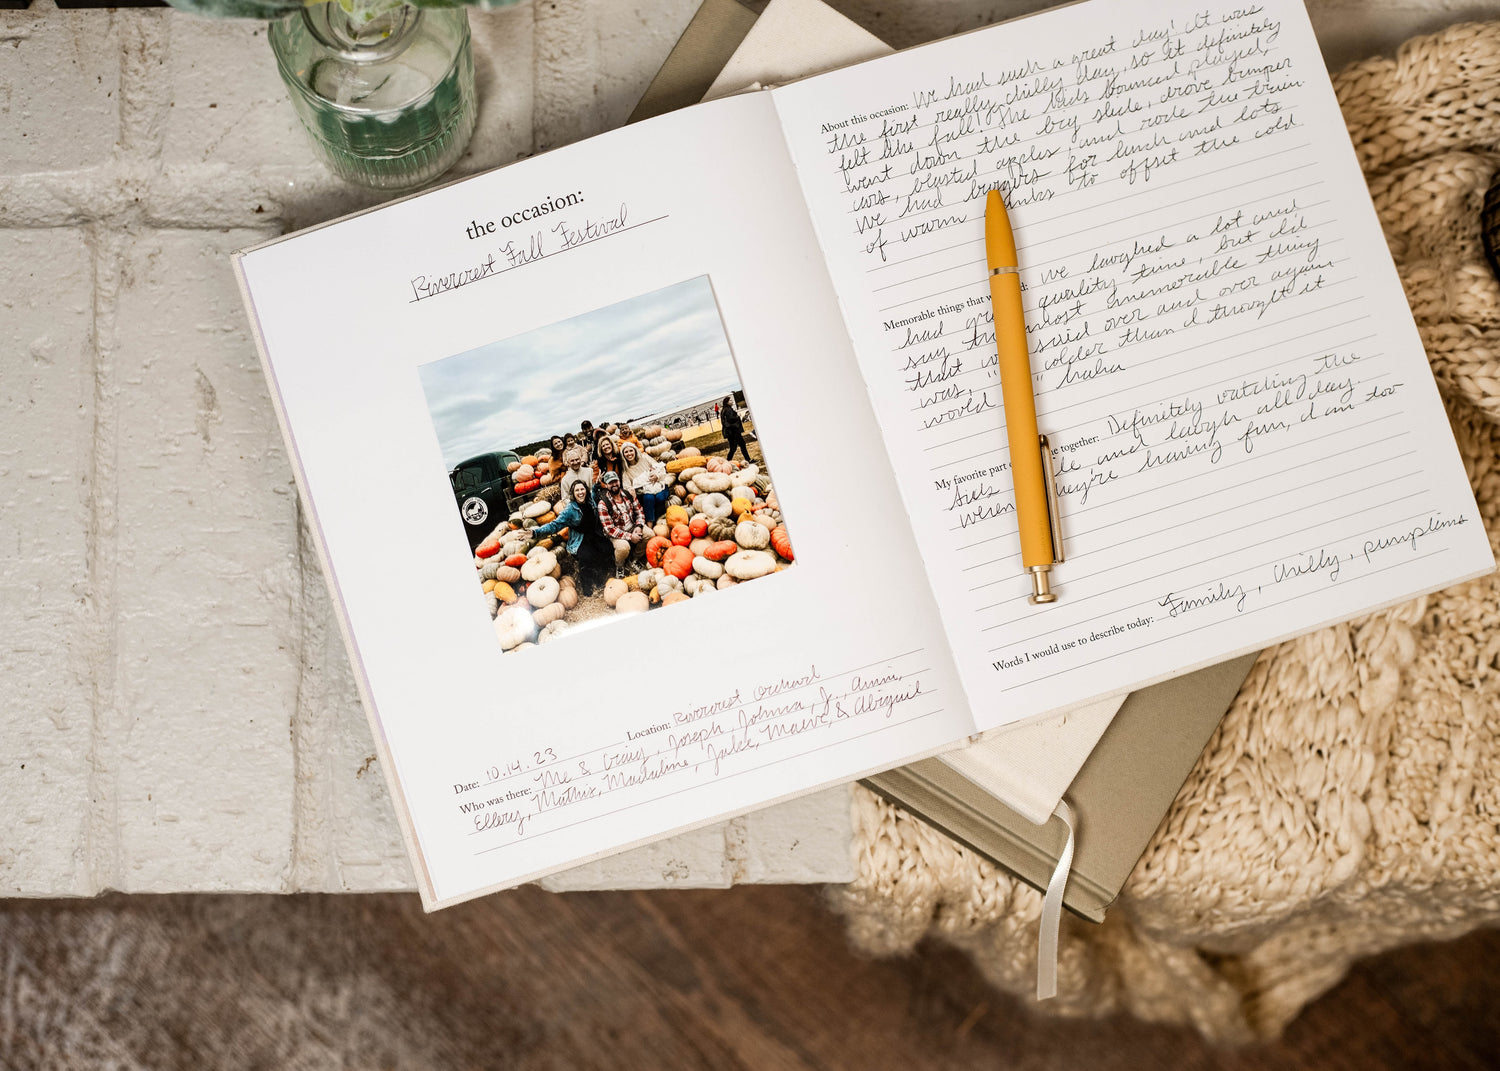 the occasion:
Rivercrest Fall Festival
Location: Rivercrest Orchard
Date: 10.14.23
Who was there: Me & Craig, Joseph, Johnna, Jr., Anni,
Ellery, Mathis, Madaline, Jake, Maeve, & Abigail
About this occasion: We had such a great day! It was
the first really chilly day, so it definitely
felt like fall! The kids bounced, played,
went down the big slide, drove bumper
cars, blasted apples, and rode the train.
We had burgers for lunch and lots
of warm drinks to offset the cold.
Memorable things that we laughed a lot and
had quality time, but I'd
say the most memorable thing
that we said over and over again
was, " colder than I thought it
would " haha
My favorite part together: Definitely watching the
kids and laugh all day.
When they're having fun, I am too
Words I would use to describe today: Family, chilly, pumpkins